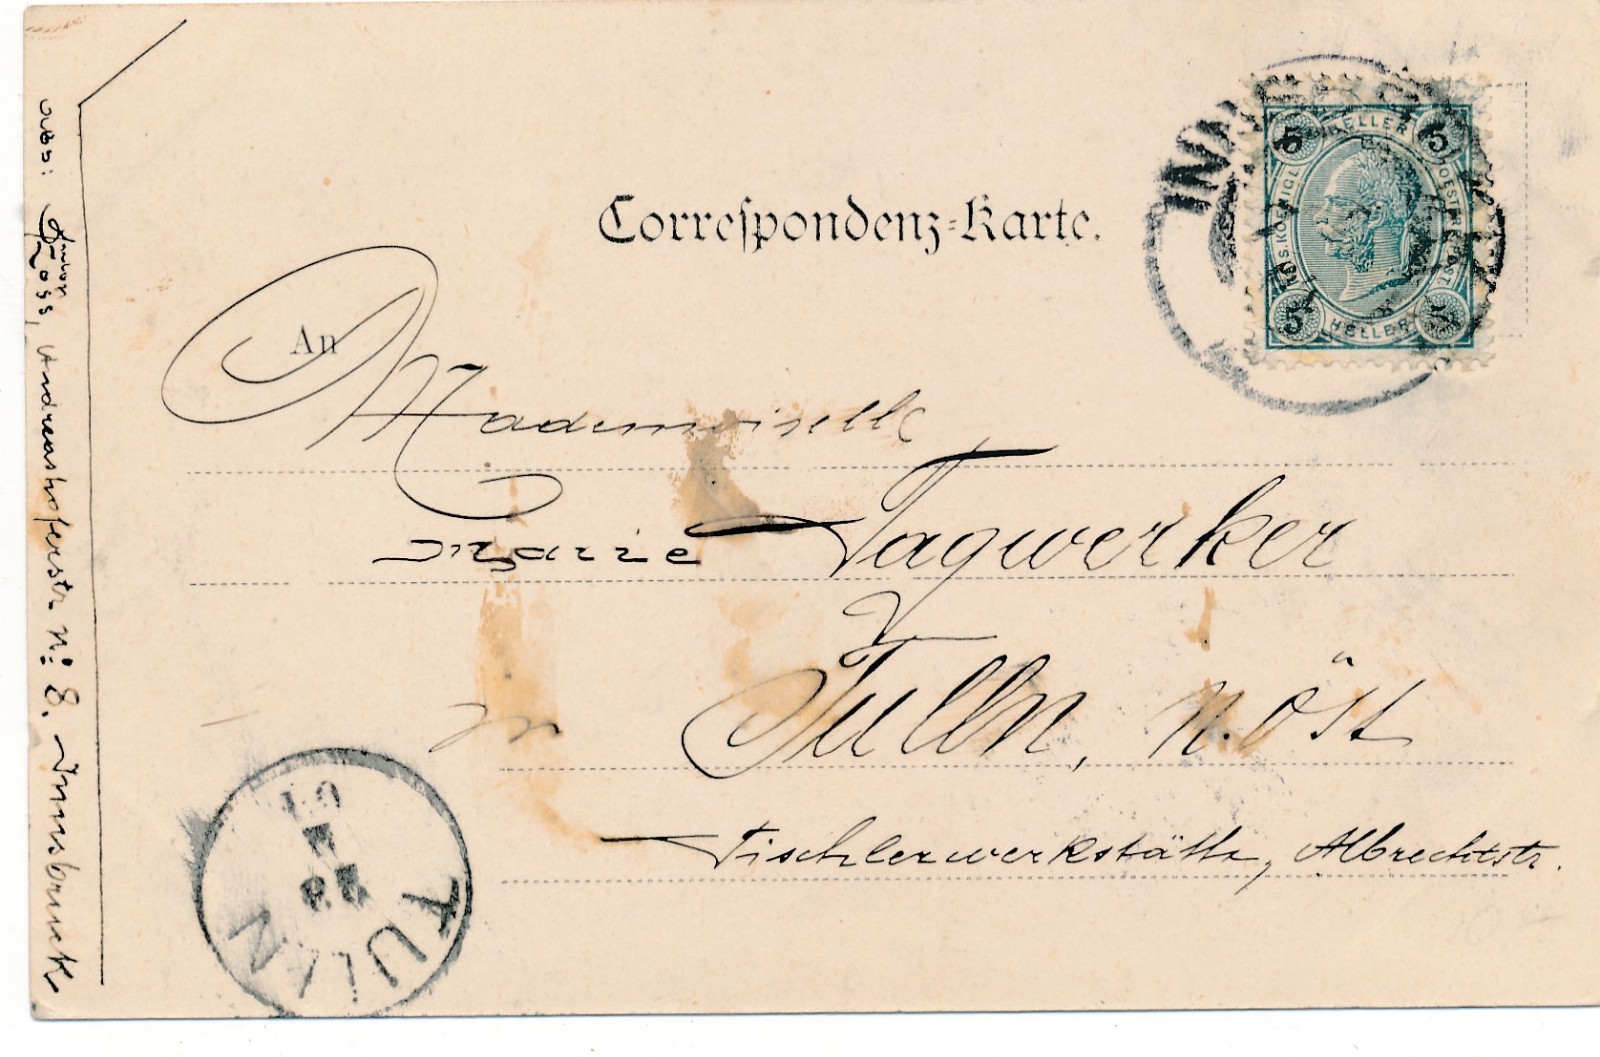 Correspondenz-Karte.
An
Mademoiselle
Marie Tagwerker
Tulln, N. Öst
Tischlerwerkstätte, Albrechtstr.
Anton
Ross, Andreashoferstr N: 8. Innsbruck
5 HELLER 5
5 HELLER 5
INNSBRUCK
TULLN